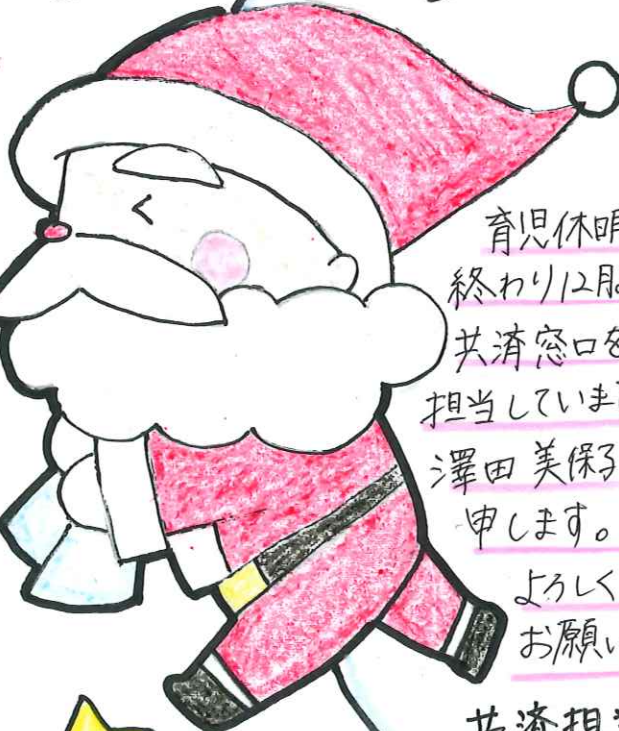 育児休
終わり12月
共済窓口を
担当していま
澤田 美保子
申します。
よろしく
お願い
共済担